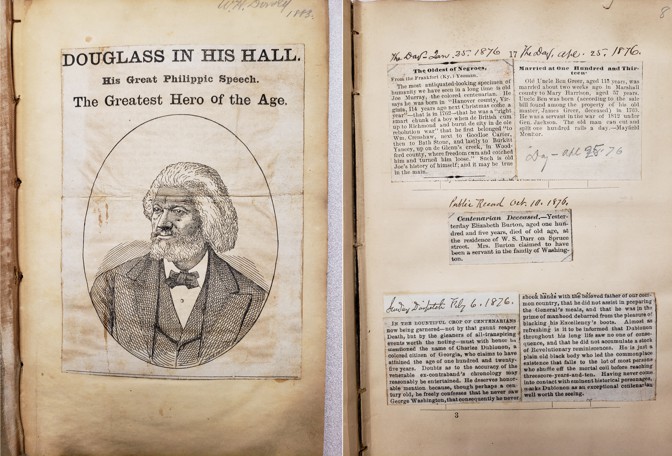 W. H. Dorsey
DOUGLASS IN HIS HALL.
His Great Philippic Speech.
The Greatest Hero of the Age.
8
The Day. Jan. 25. 1876
The Oldest of Negroes.
From the Frankfort (Ky.) Yeoman.
The most antiquated-looking specimen of
humanity we have seen in a long time is old
Joe Murray, the colored centenarian. He
says he was born in "Hanover county, Vir-
ginia, 114 years ago next Christmas come a
year"—that is in 1762—that he was a "right
smart chunk of a boy when de British cum
up to Richmond and burnt de city in de ole
rebolution war" that he first belonged "to
Wm. Crenshaw, next to Goodloe Carter,
then to Bath Stour, and lastly to Burkit
Yancey, up on de Glenn's creek, in Wood-
ford county, whar freedom cum and cotched
him and turned him loose." Such is old
Joe's history of himself, and it may be true
in the main.
17 The Day, Apl. 25. 1876.
Married at One Hundred and Thir-
teen.
Old Uncle Ben Greer, aged 113 years, was
married about two weeks ago in Marshall
county to Mary Harrison, aged 37 years.
Uncle Ben was born (according to the sale
bill found among the property of his old
master, James Greer, deceased) in 1763.
He was a servant in the war of 1812 under
Gen. Jackson. The old man can cut and
split one hundred rails a day.—Mayfield
Monitor.
Day - apl 25 - 76
Public Record Oct. 10. 1876.
Centenarian Deceased.—Yes-
terday Elizabeth Burton, aged one hun-
dred and five years, died of old age, at
the residence of W. S. Darr on Spruce
street. Mrs. Burton claimed to have
been a servant in the family of Washing-
ton.
Sunday Dispatch Feby 6. 1876.
IN THE BOUNTIFUL CROP OF CENTENARIANS
now being garnered—not by that gaunt reaper
Death, but by the gleaners of all-transpiring
events worth the noting—must with honor be
mentioned the name of Charles Dubionon, a
colored citizen of Georgia, who claims to have
attained the age of one hundred and twenty-
five years. Doubts as to the accuracy of the
venerable ex-contraband's chronology may
reasonably be entertained. He deserves honor-
able mention because, though perhaps a cen-
tury old, he freely confesses that he never saw
George Washington, that consequently he never
shook hands with the beloved father of our com-
mon country, that he did not assist in preparing
the General's meals, and that he was in the
prime of manhood debarred from the pleasure of
blacking his Excellency's boots. Almost as
refreshing is it to be informed that Dubionon
throughout his long life saw no one of conse-
quence, and that he did not accumulate a stock
of Revolutionary reminiscences. He is just a
plain old black body who led the commonplace
existence that falls to the lot of most persons
who shuffle off the mortal coil before reaching
threescore-years-and-ten. Having never come
into contact with eminent historical personages,
makes Dubionon an exceptional citizen
well worth the seeing.
3